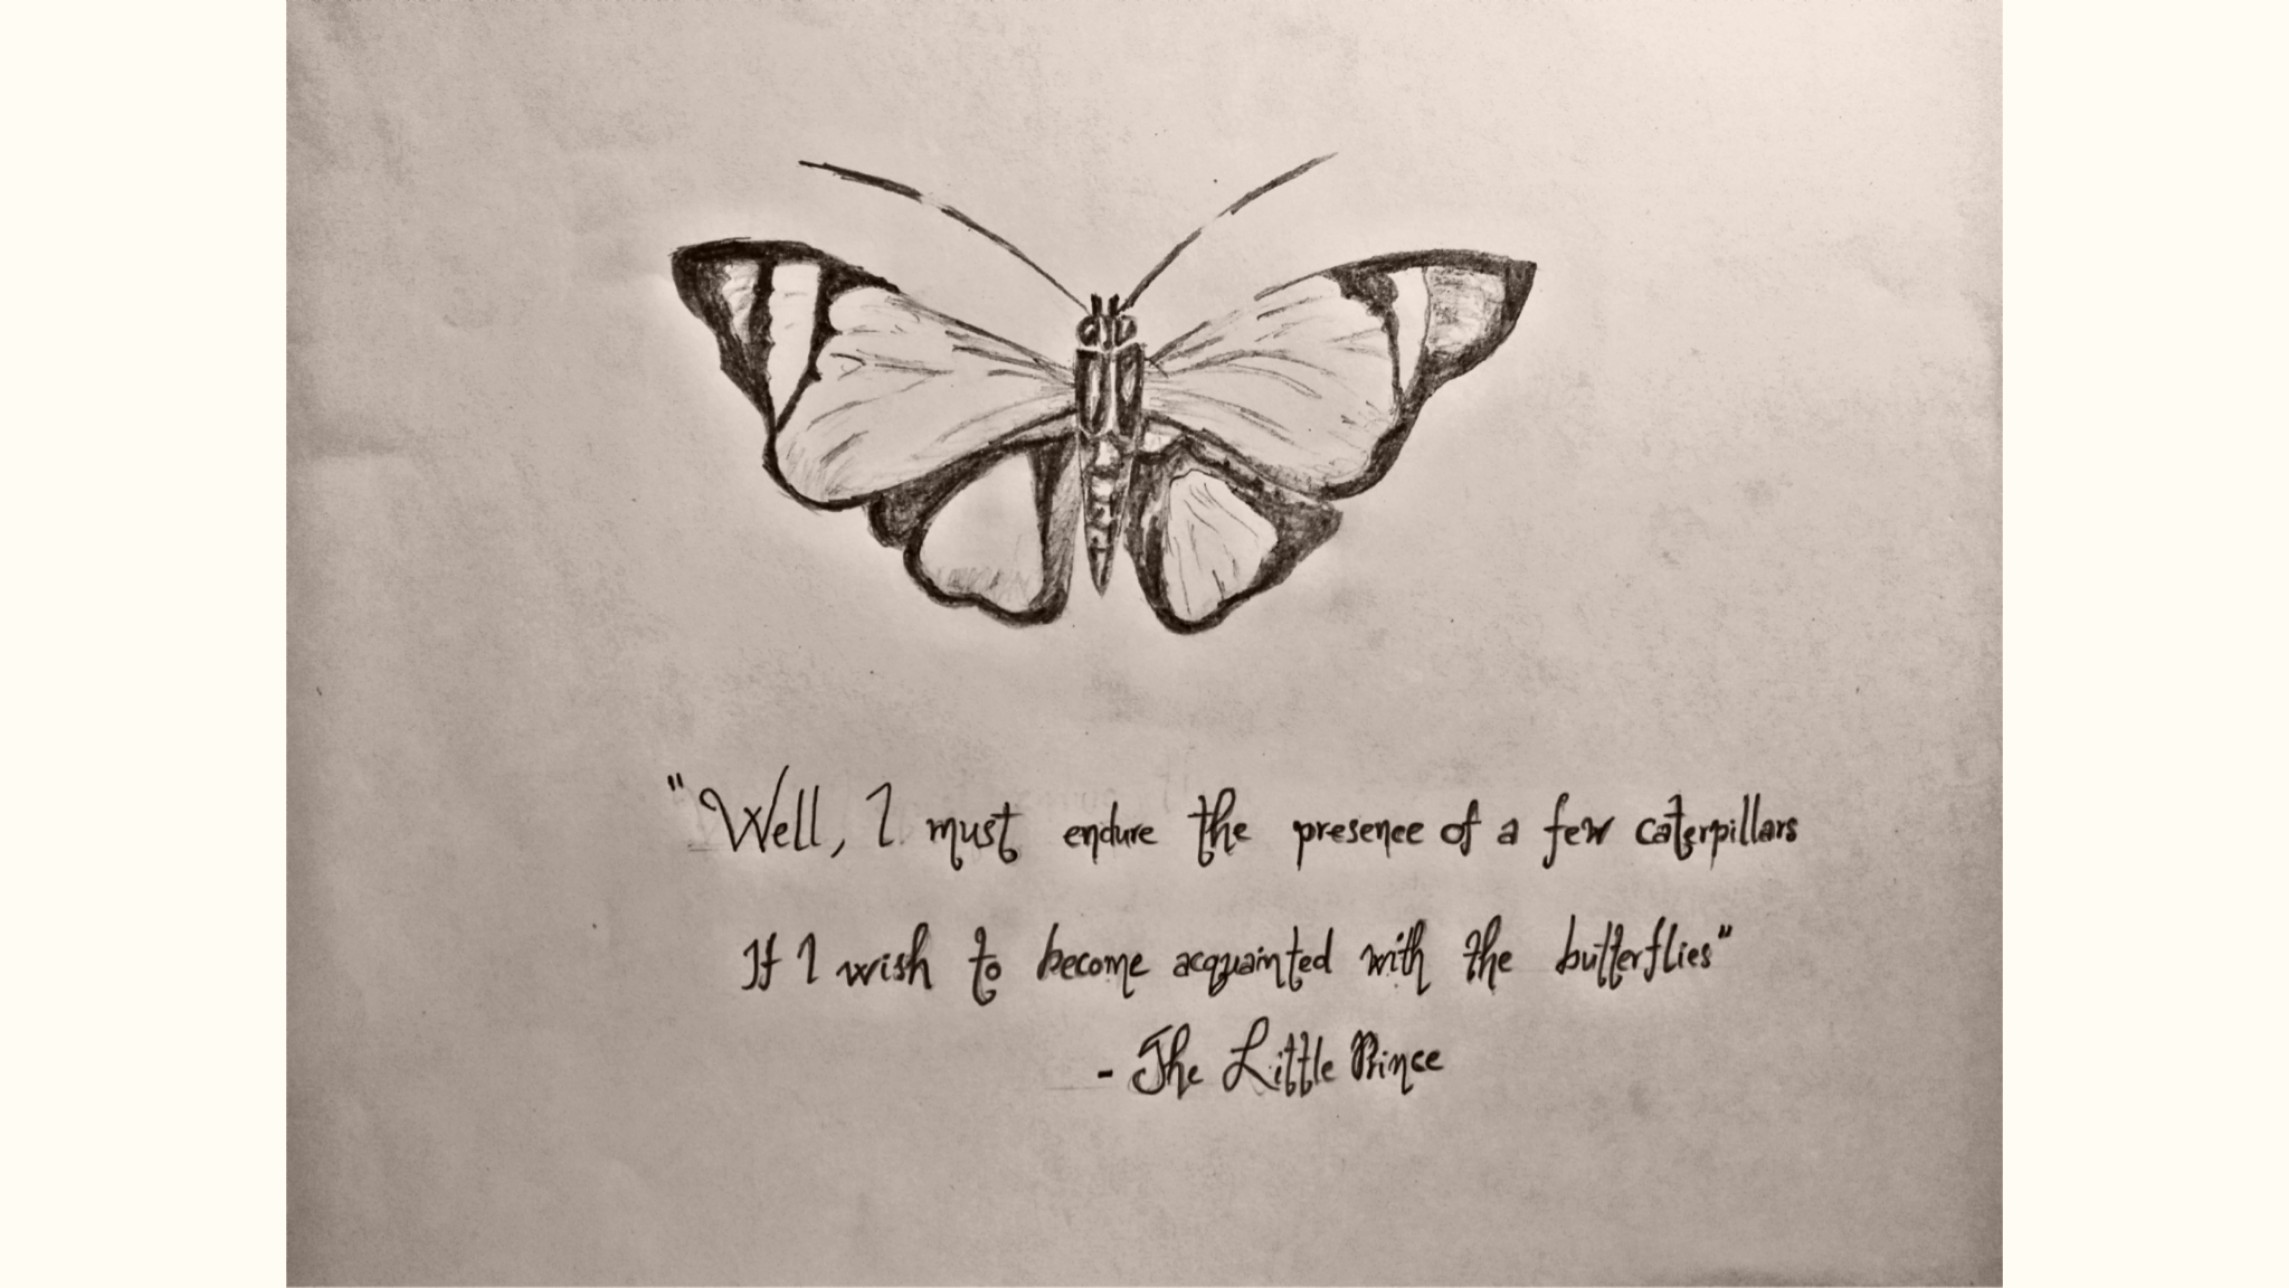 "Well, I must endure the presence of a few caterpillars
If I wish to become acquainted with the butterflies"
- The Little Prince